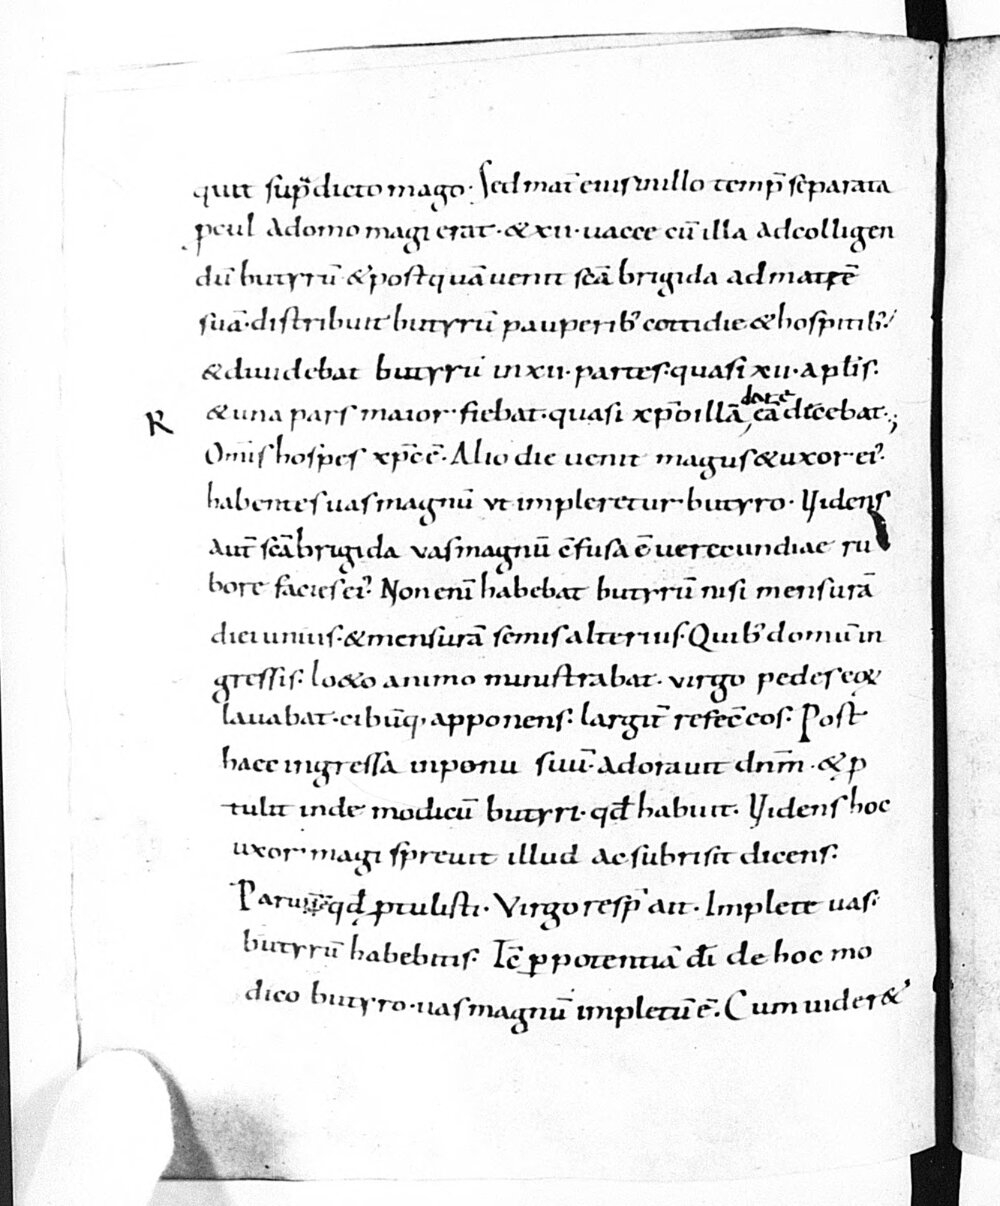 quit sup̄dicto mago· Sed mat̄ eius in illo temp̄ separata
ꝓcul adomo magi erat·&xii·uacce cū illa adcolligen
dū butyrū &postquā uenit sc̄a brigida admatrē
suā·distribuit butyrū pauperib; cottidie &hospitib;·
&diuidebat butyrū inxii·partes·quasi xii·apl̄is·
R &una pars maior·fiebat·quasi xp̄o illā, dare eā dicebat·;
Omīs hospes xp̄c ē·Alio die uenit magus &uxor ei᾿·
habentes uas magnū vt impleretur butyro· Videns
aut̄ sc̄a brigida vas magnū ēfusa ē uerecundiae ru
bore facies ei᾿· Non enī habebat butyrū nisi mensurā
diei unius·&mensurā semis alterius·Quib; domū in
gressis· l&o animo ministrabat· virgo pedes eoꝝ
lauabat·cibūq, apponens· largit̄ refec̄ eos· Post
haec ingressa inponu suū·adorauit dn̄m·&ꝓ
tulit inde modicū butyri·qđ habuit· Videns hoc
uxor magi spreuit illud ac subrisit dicens·
Paruū qđ ꝓtulisti· Virgo resp̄ ait· Implete uas·
butyrū habebitis· Ic̄ ꝑ potentiā dī de hoc mo
dico butyro·uas magnū impletū ē. Cum uider&